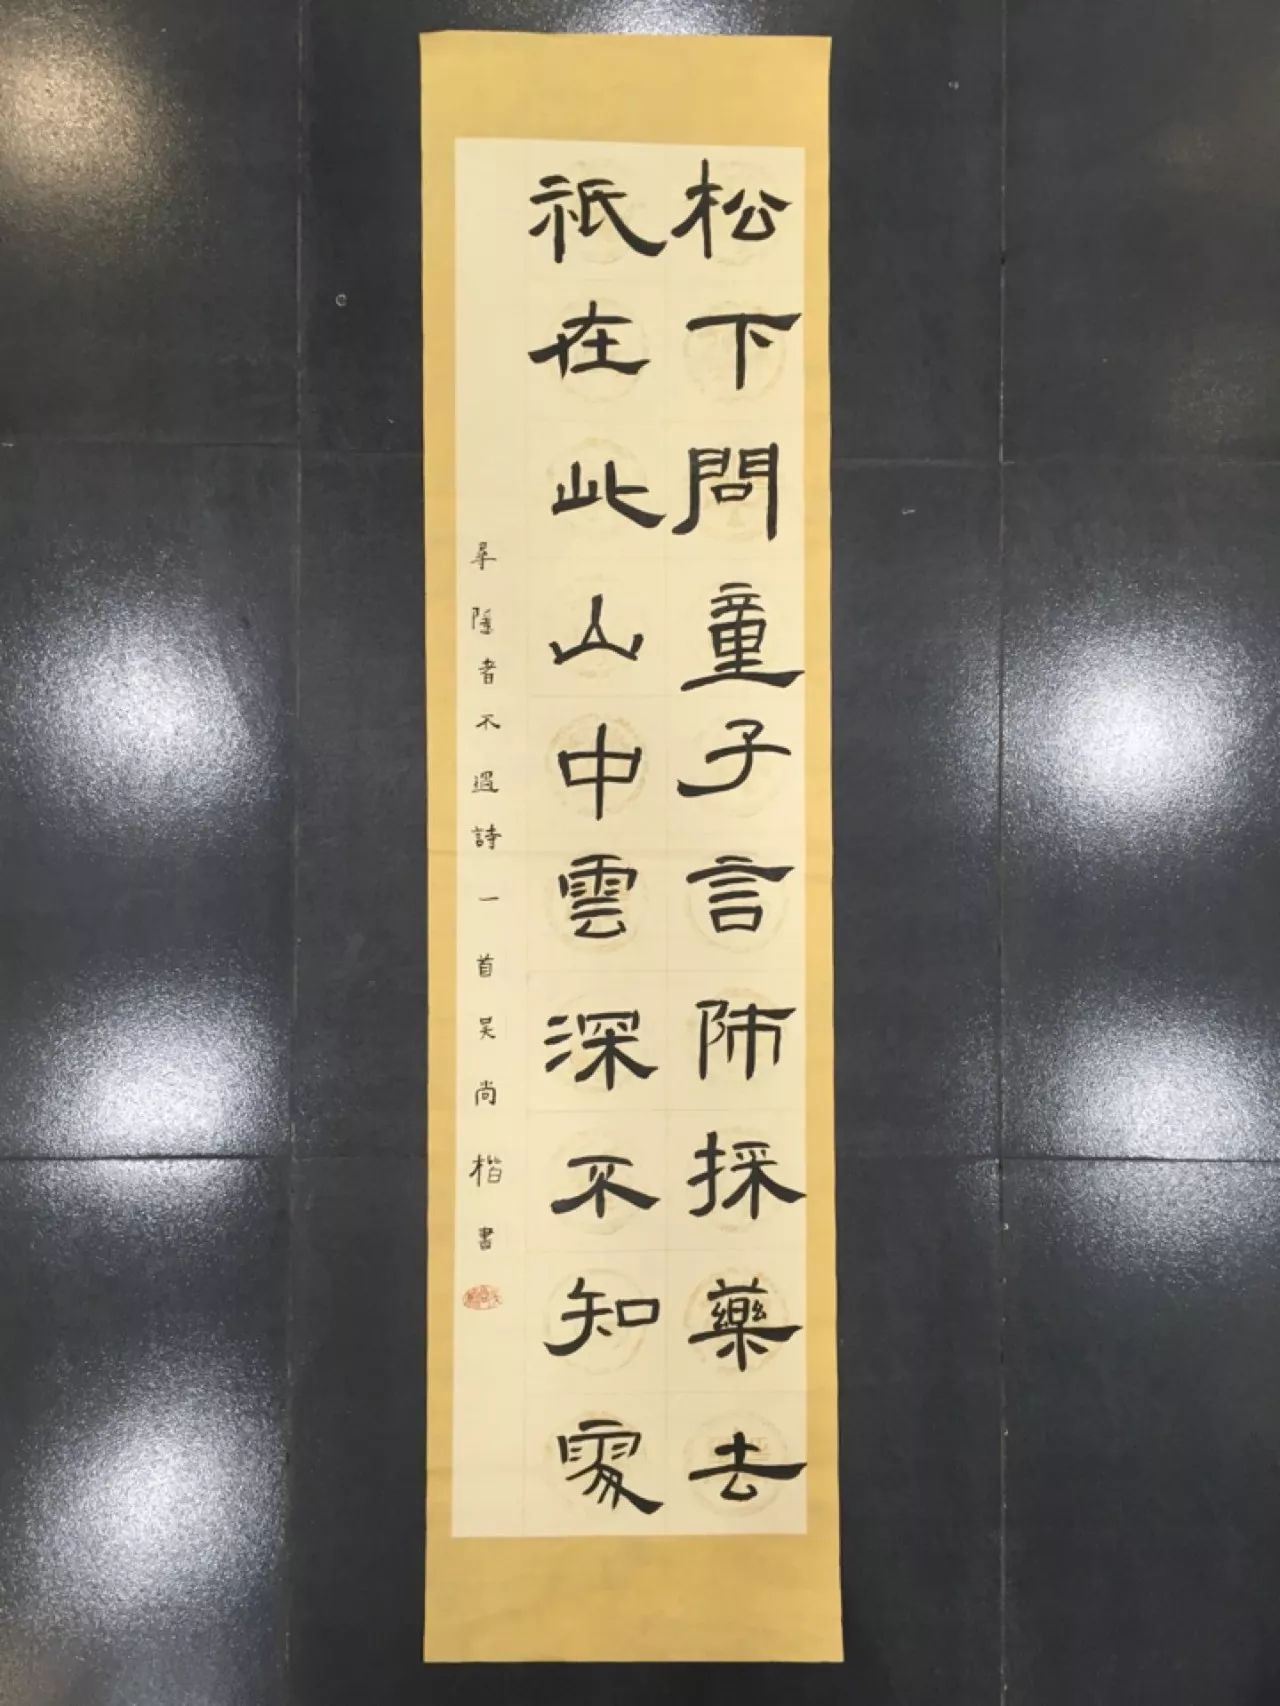 松下問童子言師採藥去
祇在此山中雲深不知處
尋隱者不遇詩一首吴尚楷書